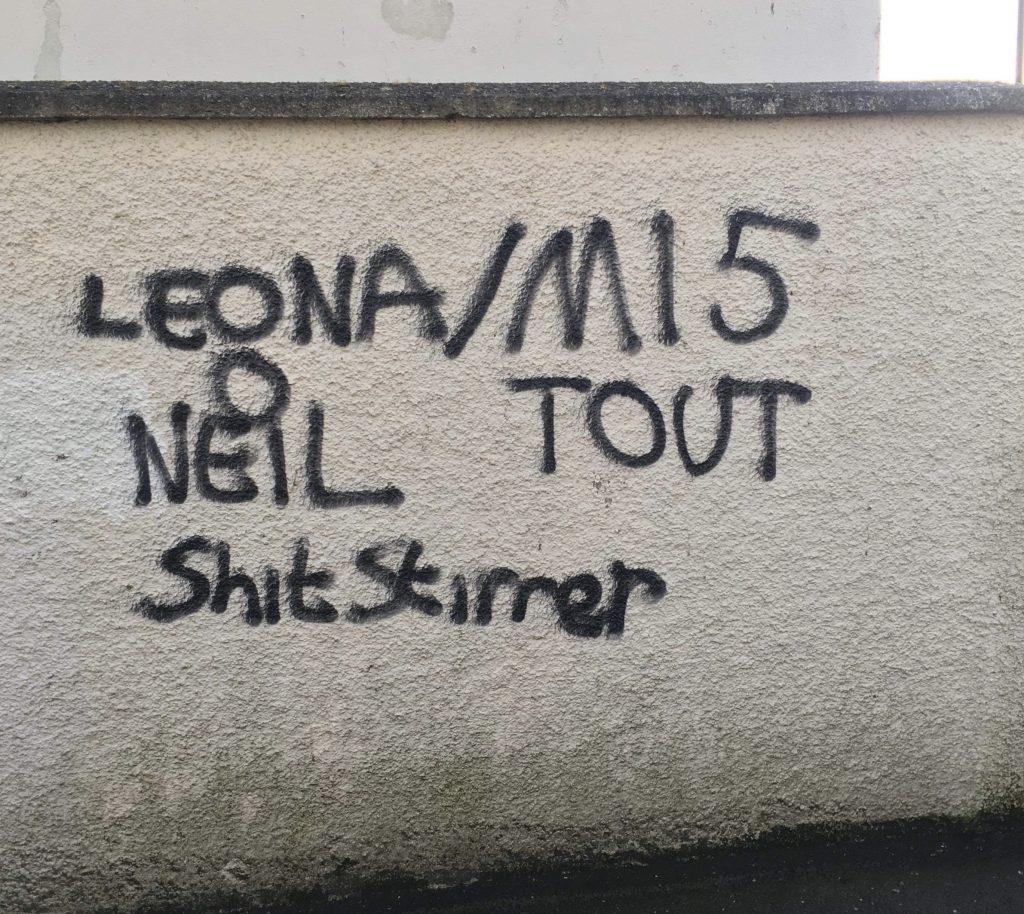 LEONA/MI5
O
NEIL TOUT
Shit Stirrer